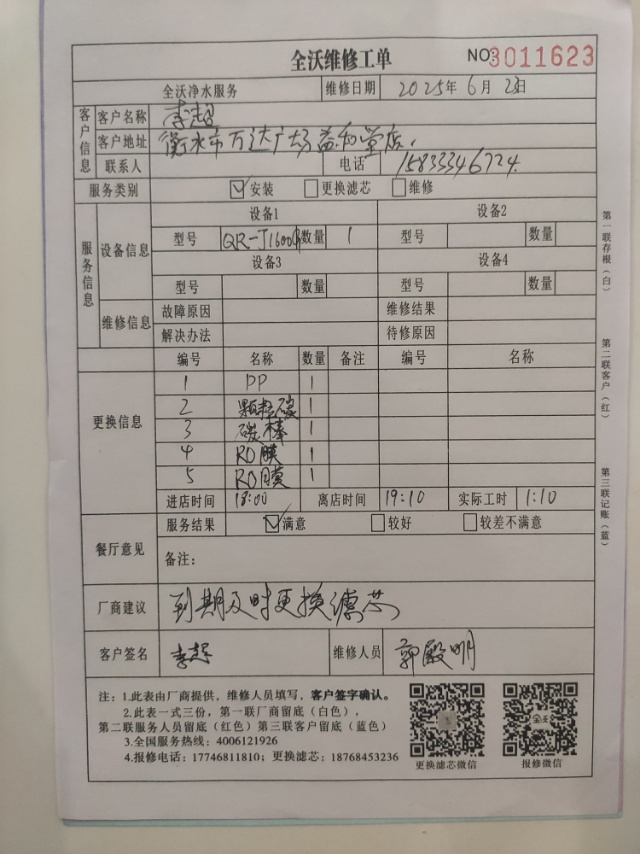 全沃维修工单 NO:3011623
全沃净水服务 维修日期 2025年6月23日
客户信息
客户名称 李超
客户地址 衡水市万达广场益和堂店.
联系人 电话 15833346724.
服务类别 ☑安装 □更换滤芯 □维修
服务信息
设备信息
设备1 设备2
型号 QR-J1600 数量 1 型号 数量
设备3 设备4
型号 数量 型号 数量
维修信息
故障原因 维修结果
解决办法 待修原因
更换信息
编号 名称 数量 备注 编号 名称
1 PP 1
2 颗粒碳 1
3 碳棒 1
4 RO膜 1
5 RO膜 1
进店时间 18:00 离店时间 19:10 实际工时 1:10
餐厅意见
服务结果 ☑满意 □较好 □较差不满意
备注:
厂商建议 到期及时更换滤芯
客户签名 李超 维修人员 郭殿明
注: 1.此表由厂商提供,维修人员填写,客户签字确认。
2.此表一式三份,第一联厂商留底(白色),
第二联服务人员留底(红色)第三联客户留底(蓝色)
3.全国服务热线: 4006121926
4.报修电话: 17746811810; 更换滤芯: 18768453236
更换滤芯微信 报修微信
第一联存根(白)
第二联客户(红)
第三联记账(蓝)